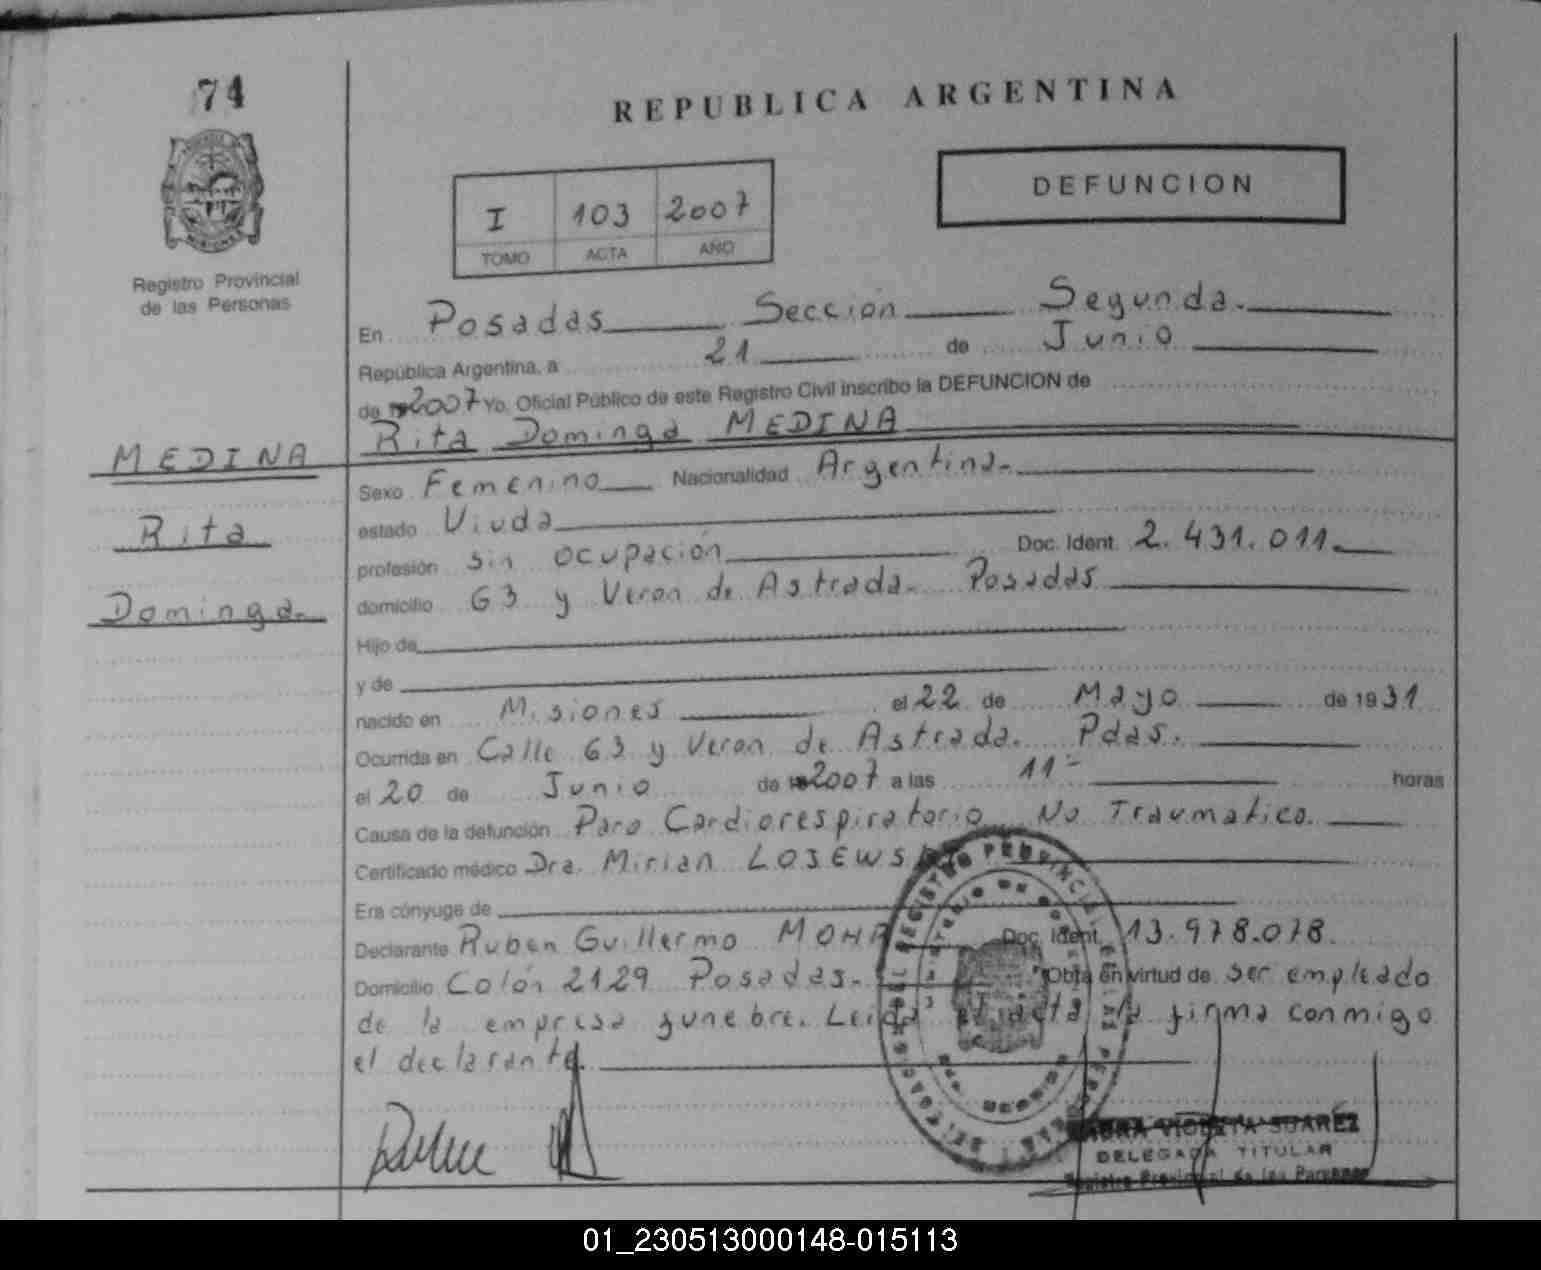 74
REPUBLICA ARGENTINA
DEFUNCION
I 103 2007
TOMO ACTA AÑO
Registro Provincial
de las Personas
En Posadas Sección Segunda.
República Argentina, a 21 de Junio
de 2007 Yo. Oficial Público de este Registro Civil inscribo la DEFUNCION de
Rita Dominga MEDINA
MEDINA
Rita
Dominga.
Sexo Femenino Nacionalidad Argentina.
estado Viuda
profesión sin ocupación Doc. Ident. 2.431.011.
domicilio 63 y Veron de Astrada. Posadas
Hijo de
y de
nacido en Misiones el 22 de Mayo de 1931
Ocurrida en Calle 63 y Veron de Astrada. Pdas.
el 20 de Junio de 2007 a las 11- horas
Causa de la defunción Paro Cardiorespiratorio No Traumatico.
Certificado médico Dra. Mirian
Era cónyuge de
Declarante Ruben Guillermo Doc. Ident. 13.978.078.
Domicilio Colón 2129 Posadas. Obra en virtud de ser empleado
de la empresa funebre. Leida el acta la firma conmigo
el declarante.
REGISTRO PROVINCIAL DE LAS PERSONAS
SUAREZ
DELEGADA TITULAR
Registro Provincial de las Personas
01_230513000148-015113